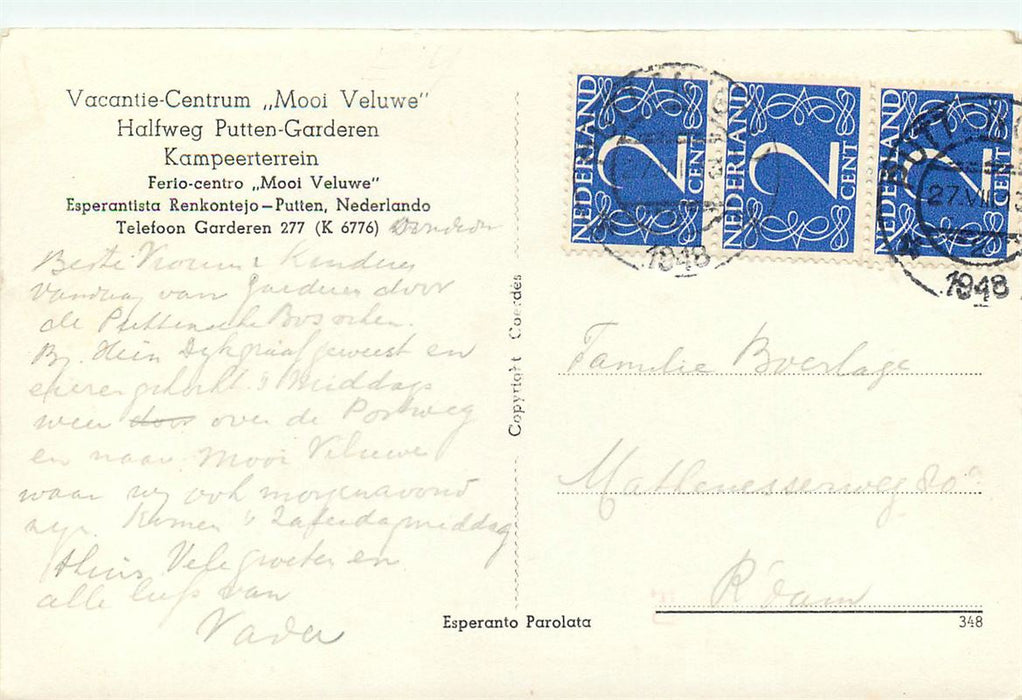 Vacantie-Centrum „Mooi Veluwe"
Halfweg Putten-Garderen
Kampeerterrein
Ferio-centro „Mooi Veluwe"
Esperantista Renkontejo–Putten, Nederlando
Telefoon Garderen 277 (K 6776)
Beste Vrouw & Kinderen
Vandaag van Garderen door
de Puttensche Bosschen.
Br. Hein Dykgraaf geweest en
eieren gekocht. 's Middags
weer door over de Postweg
en naar Mooi Veluwe
waar wy ook morgenavond
zyn. Komen 's Zaterdagmiddag
thuis. Vele groeten en
alle liefs van
Vader
Copyright Coerdes
NEDERLAND 2 CENT
NEDERLAND 2 CENT
NEDERLAND 2 CENT
1948
PUTT
27.VII
1948
Familie Boerlage
Mathenesserweg 80
R'dam
Esperanto Parolata
348